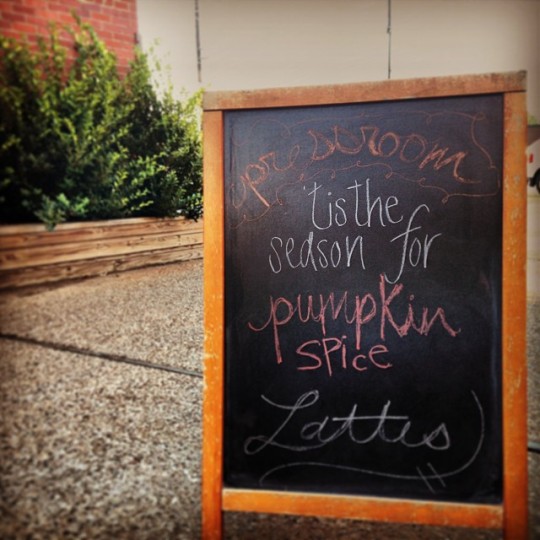 pressroom
'tis the
season for
pumpkin
spice
Lattes